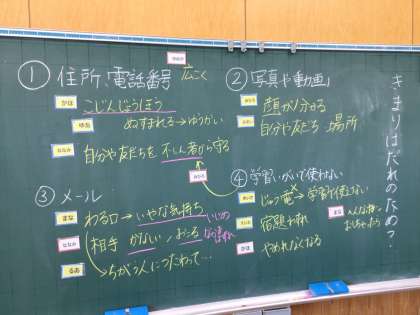 きまりはだれのため?
① 住所、電話番号 広こく
かほ こじんじょうほう
ゆあ ぬすまれる→ゆうかい
ななみ 自分や友だちを不しん者から守る
② 写真や動画
顔が分かる
自分や友だち 場所
③ メール
まな わる口→いやな気持ち いじめ
ななみ 相手 かなしい、おこる
るあ ちがう人につたわって…
④ 学習いがいで使わない
じゅう電×→学習で使えない
宿題わすれ
かほ やめれなくなる